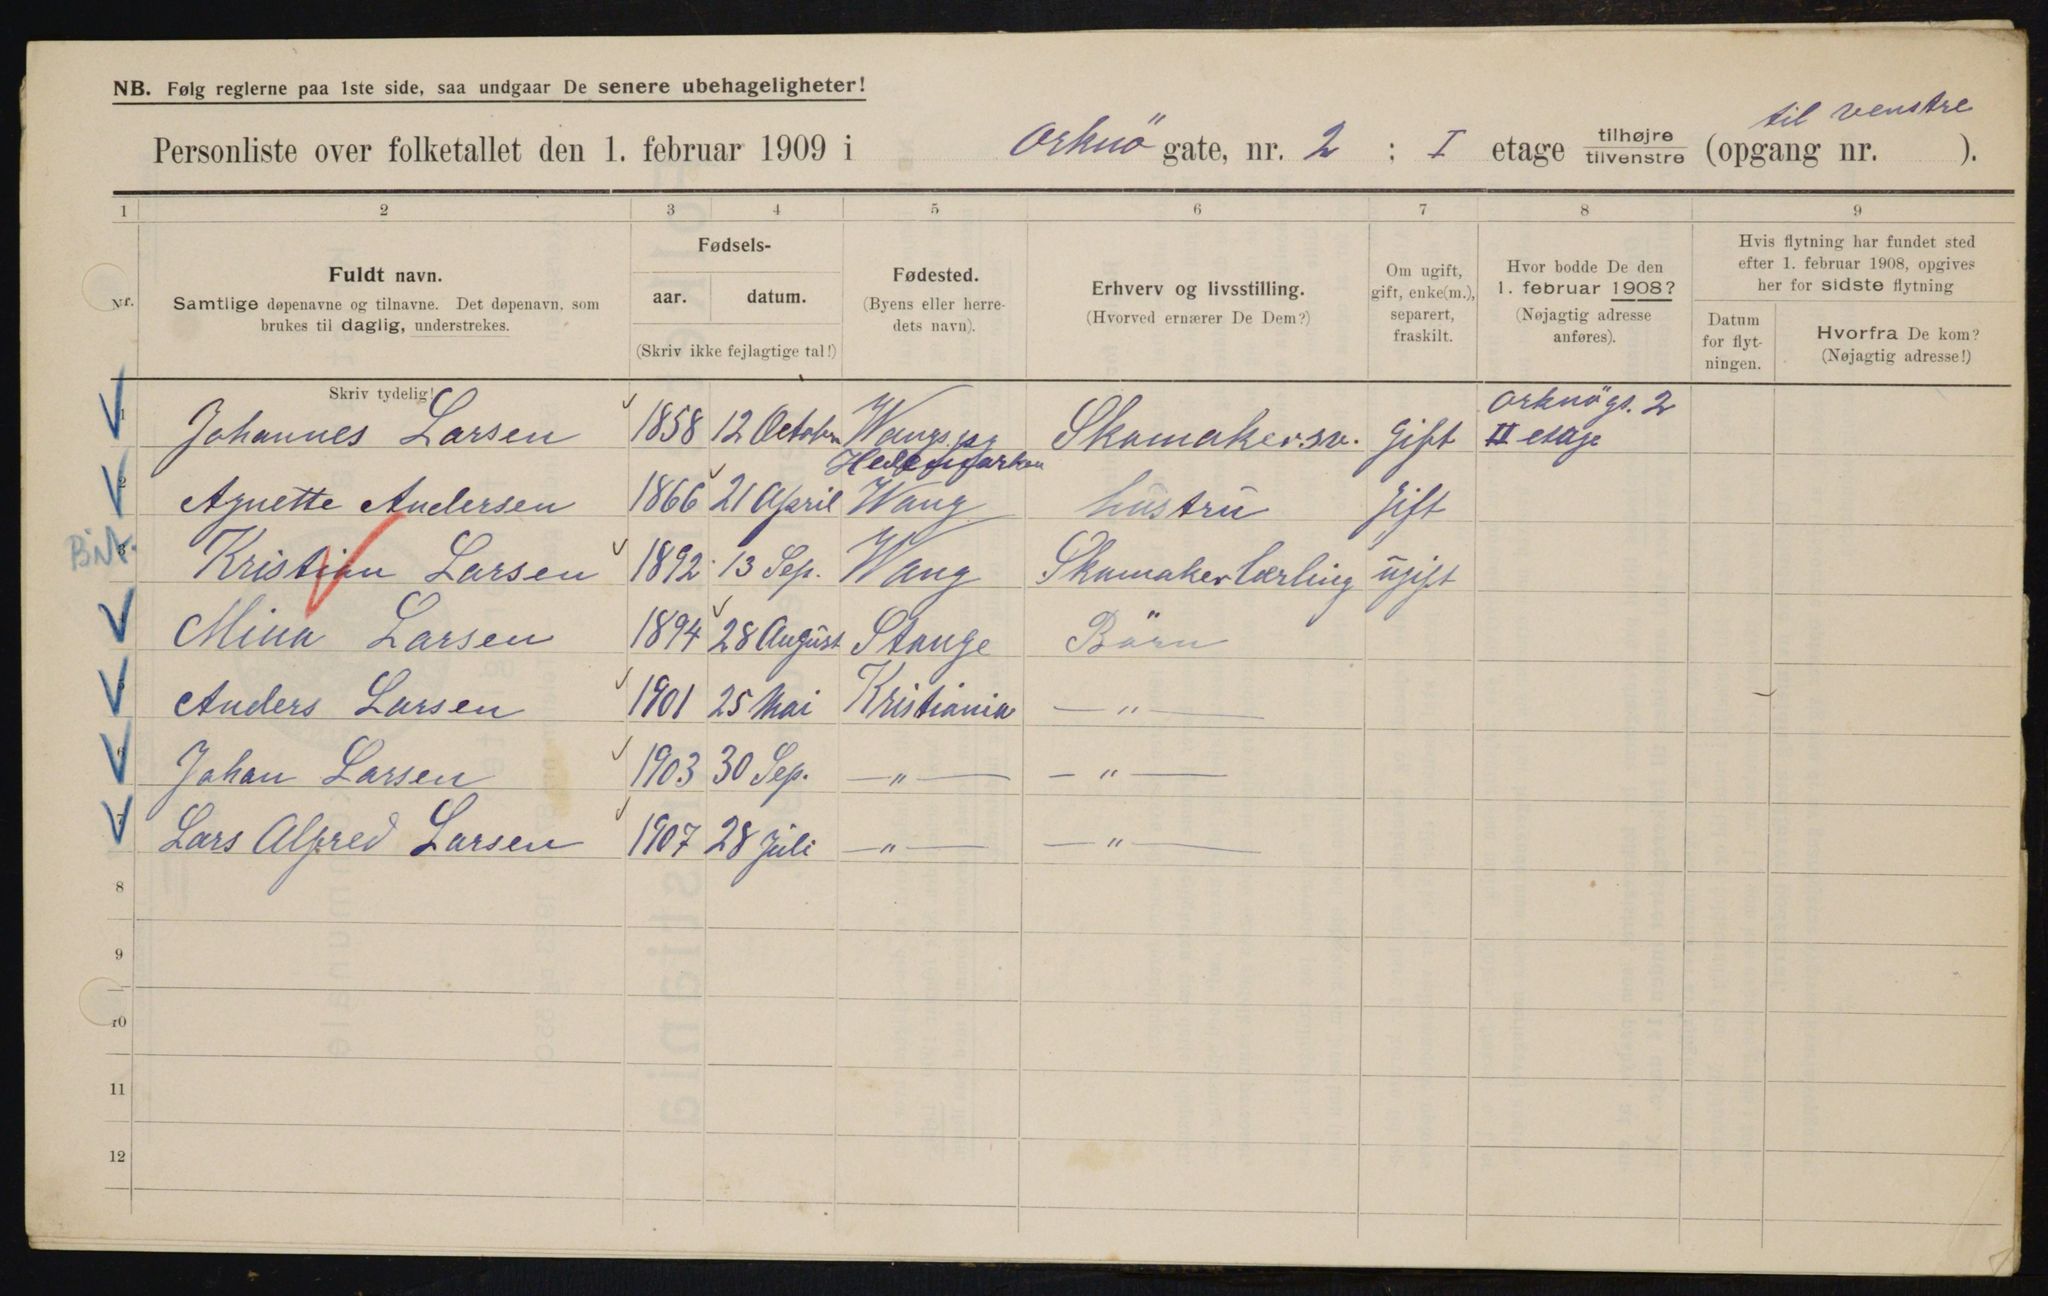 NB. Følg reglerne paa 1ste side, saa undgaar De senere ubehageligheter!
til venstre
Personliste over folketallet den 1. februar 1909 i Orknö gate, nr. 2 ; I etage tilhøjre tilvenstre (opgang nr. ).
1 2 3 4 5 6 7 8 9
Nr.
Fuldt navn.
Samtlige døpenavne og tilnavne. Det døpenavn, som
brukes til daglig, understrekes.
Skriv tydelig!
Fødsels-
aar. datum.
(Skriv ikke fejlagtige tal!)
Fødested.
(Byens eller herre-
dets navn).
Erhverv og livsstilling.
(Hvorved ernærer De Dem?)
Om ugift,
gift, enke(m.),
separert,
fraskilt.
Hvor bodde De den
1. februar 1908?
(Nøjagtig adresse
anføres).
Hvis flytning har fundet sted
efter 1. februar 1908, opgives
her for sidste flytning
Datum
for flyt-
ningen.
Hvorfra De kom?
(Nøjagtig adresse!)
1 Johannes Larsen 1858 12 October Wangs. pg Skomakersv. Gift Orknögs. 2
Hedemarken II etage
2 Agnette Andersen 1866 21 April Wang hustru Gift
3 Kristian Larsen 1892 13 Sep. Wang Skomakerlærling ugift
Mina Larsen 1894 28 August Stange Börn
5 Anders Larsen 1901 25 Mai Kristiania — „ —
6 Johan Larsen 1903 30 Sep. — „ — — „ —
7 Lars Alfred Larsen 1907 28 Juli — „ — — „ —
8
9
10
11
12